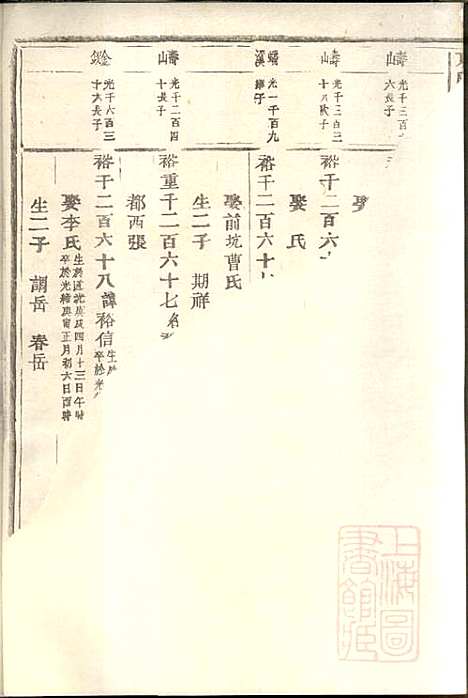 疇山
光千三百
六長子
疇山
光千三百三
十六次子
蟠溪
光一千百九
疇山
光千二百四
十長子
金
光千六百三
十六長子
娶
裕千二百六
娶 氏
裕千二百六十
娶前坑曹氏
生二子 期祥
裕重千二百六十七
都西張
裕千二百六十八諱裕信
生
卒於光
娶李氏
生於道光庚戌四月十三日午時
卒於光緒庚寅正月初六日酉時
生二子 調岳 春岳
上海圖
書館藏